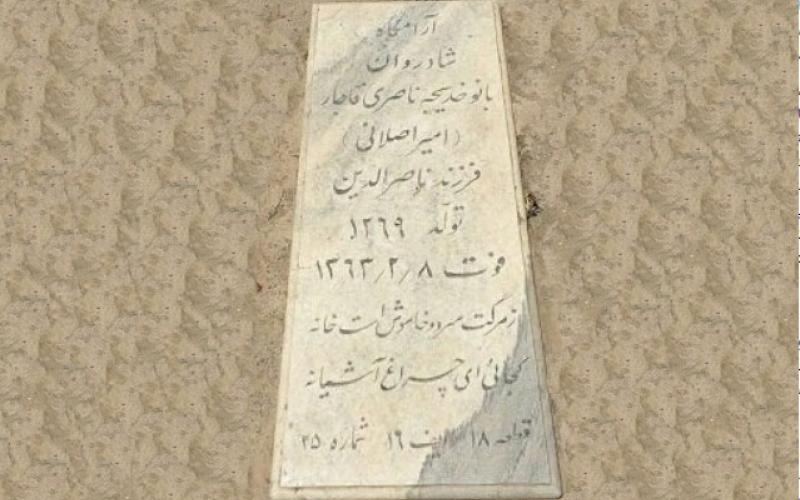 آرامگاه
شادروان
بانو خدیجه ناصری قاجار
(امیراصلانی)
فرزند ناصرالدین
تولّد ۱۲۶۹
فوت ۱۳۶۳/۲/۸
از مرگت سرد و خاموش است خانه
کجائی ای چراغ آشیانه
قطعه ۱۸ ردیف ۱۶ شماره ۲۵